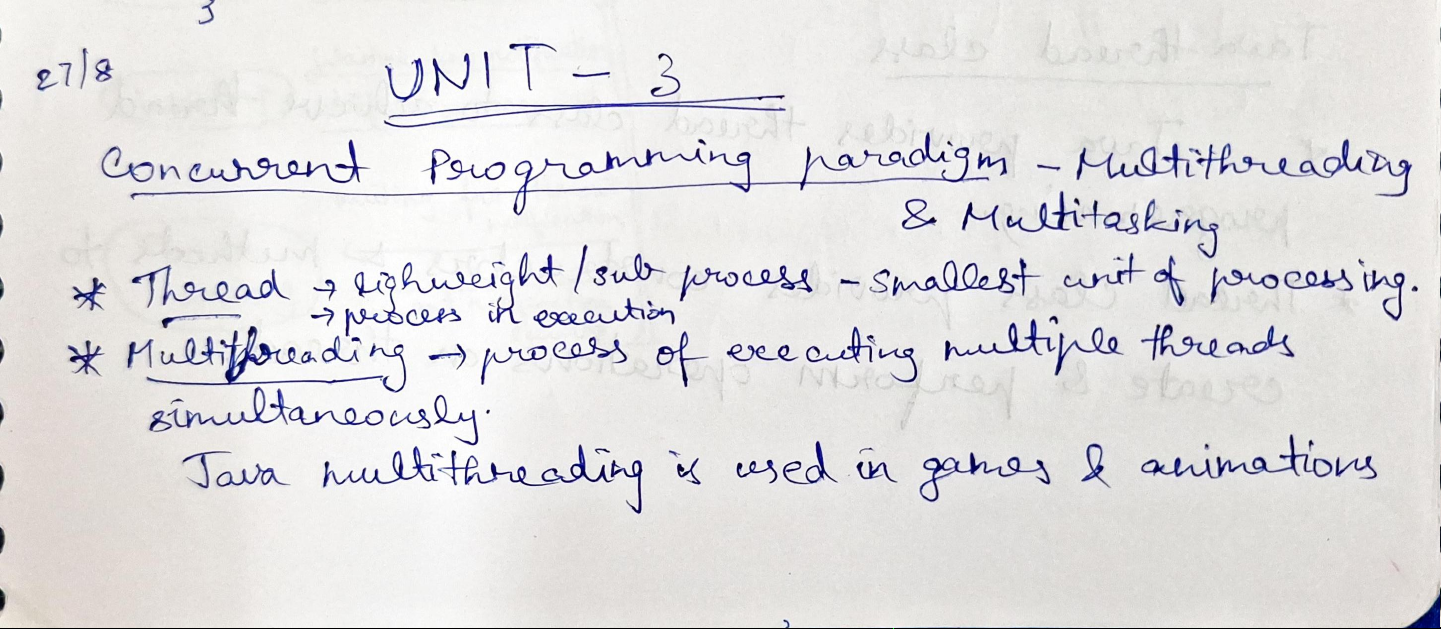 3
27/8
UNIT - 3
Concurrent Programming paradigm - Multithreading
& Multitasking
* Thread → lighweight / sub process - smallest unit of processing.
→ process in execution
* Multithreading → process of executing multiple threads
simultaneously.
Java multithreading is used in games & animations